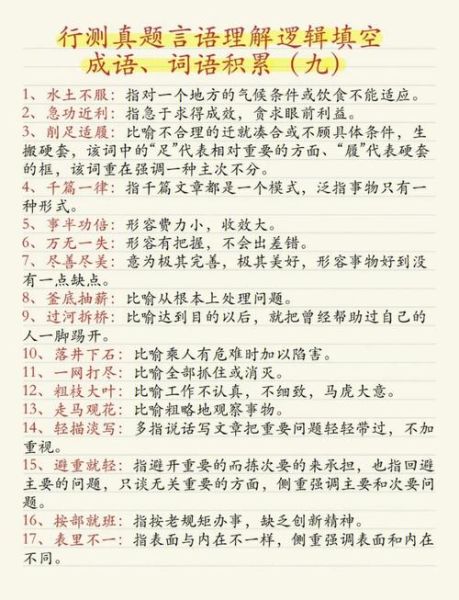 行测真题言语理解逻辑填空
成语、词语积累（九）
1、水土不服：指对一个地方的气候条件或饮食不能适应。
2、急功近利：指急于求得成效，贪求眼前利益。
3、削足适履：比喻不合理的迁就凑合或不顾具体条件，生
搬硬套，该词中的“足”代表相对重要的方面、“履”代表硬套
的框，该词重在强调一种主次不分。
4、千篇一律：指千篇文章都是一个模式，泛指事物只有一
种形式。
5、事半功倍：形容费力小，收效大。
6、万无一失：形容有把握，不会出差错。
7、尽善尽美：意为极其完善，极其美好，形容事物好到没
有一点缺点。
8、釜底抽薪：比喻从根本上处理问题。
9、过河拆桥：比喻达到目的以后，就把曾经帮助过自己的
人一脚踢开。
10、落井下石：比喻乘人有危难时加以陷害。
11、一网打尽：比喻全部抓住或消灭。
12、粗枝大叶：比喻工作不认真，不细致，马虎大意。
13、走马观花：比喻粗略地观察事物。
14、轻描淡写：多指说话写文章把重要问题轻轻带过，不加
重视。
15、避重就轻：指避开重要的而拣次要的来承担，也指回避
主要的问题，只谈无关重要的方面，侧重强调主要和次要问
题。
16、按部就班：指按老规矩办事，缺乏创新精神。
17、表里不一：指表面与内在不一样，侧重强调表面和内在
不同。